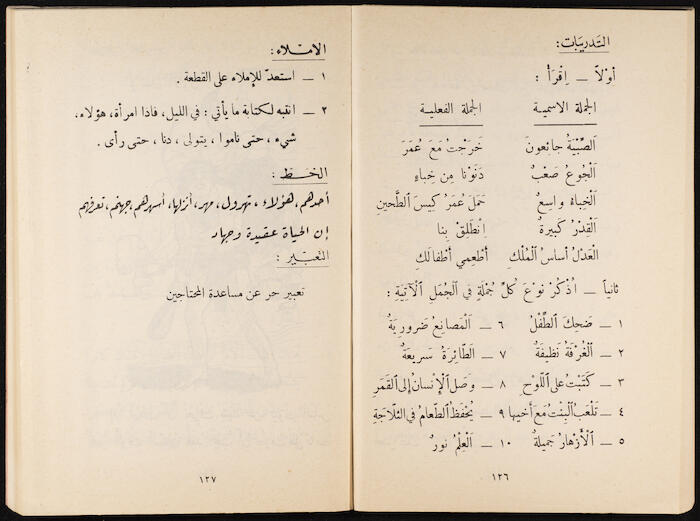 التَدريبَات:
أوّلاً ــ اِقْرَأْ :
الجملة الاسمية الجملة الفعلية
اَلصِّبْيَةُ جائِعونَ خَرَجْتُ مَعَ عُمَرَ
اَلْجُوعُ صَعْبٌ دَنَوْنا مِن خِباءٍ
اَلْخِباءُ واسِعٌ حَمَلَ عُمَرُ كِيسَ اَلطَّحينِ
اَلْقِدْرُ كَبيرةٌ اِنْطَلِقْ بِنا
اَلْعَدْلُ أساسُ اَلْمُلْكِ أطْعِمي أطْفالَكِ
ثانياً ــ اُذْكُرْ نَوْعَ كُلِّ جُمْلَةٍ في اَلْجُمَلِ اَلْآتِيَةِ :
١ ــ ضَحِكَ اَلطِّفْلُ ٦ ــ اَلْمَصانِعُ ضَرورِيَةٌ
٢ ــ اَلْغُرْفَةُ نَظيفَةٌ ٧ ــ اَلطّائِرَةُ سَريعَةٌ
٣ ــ كَتَبْتُ على اَللَّوْحِ ٨ ــ وَصَلَ اَلْإِنْسانُ إلى اَلْقَمَرِ
٤ ــ تَلْعَبُ اَلْبِنْتُ مَعَ أخيها ٩ ــ يُحْفَظُ اَلطَّعامُ في اَلثَّلاجَةِ
٥ ــ اَلْأَزْهارُ جَميلَةٌ ١٠ ــ اَلْعِلْمُ نورٌ
١٢٦
الامْلاء :
١ ــ استعدّ للإملاء على القطعة .
٢ ــ انتبه لكتابة ما يأتي : في الليل، فاذا امرأة، هؤلاء،
شيء ، حتى ناموا ، يتولى ، دنا ، حتى رأى .
الخط :
أحدهم، هؤلاء ، تهرول، مهر، أنزلها، أسهرهم، جهنم، نعرفهم
إن الحياة عقيدة وجهاد
التعْبير :
تعبير حر عن مساعدة المحتاجين
١٢٧